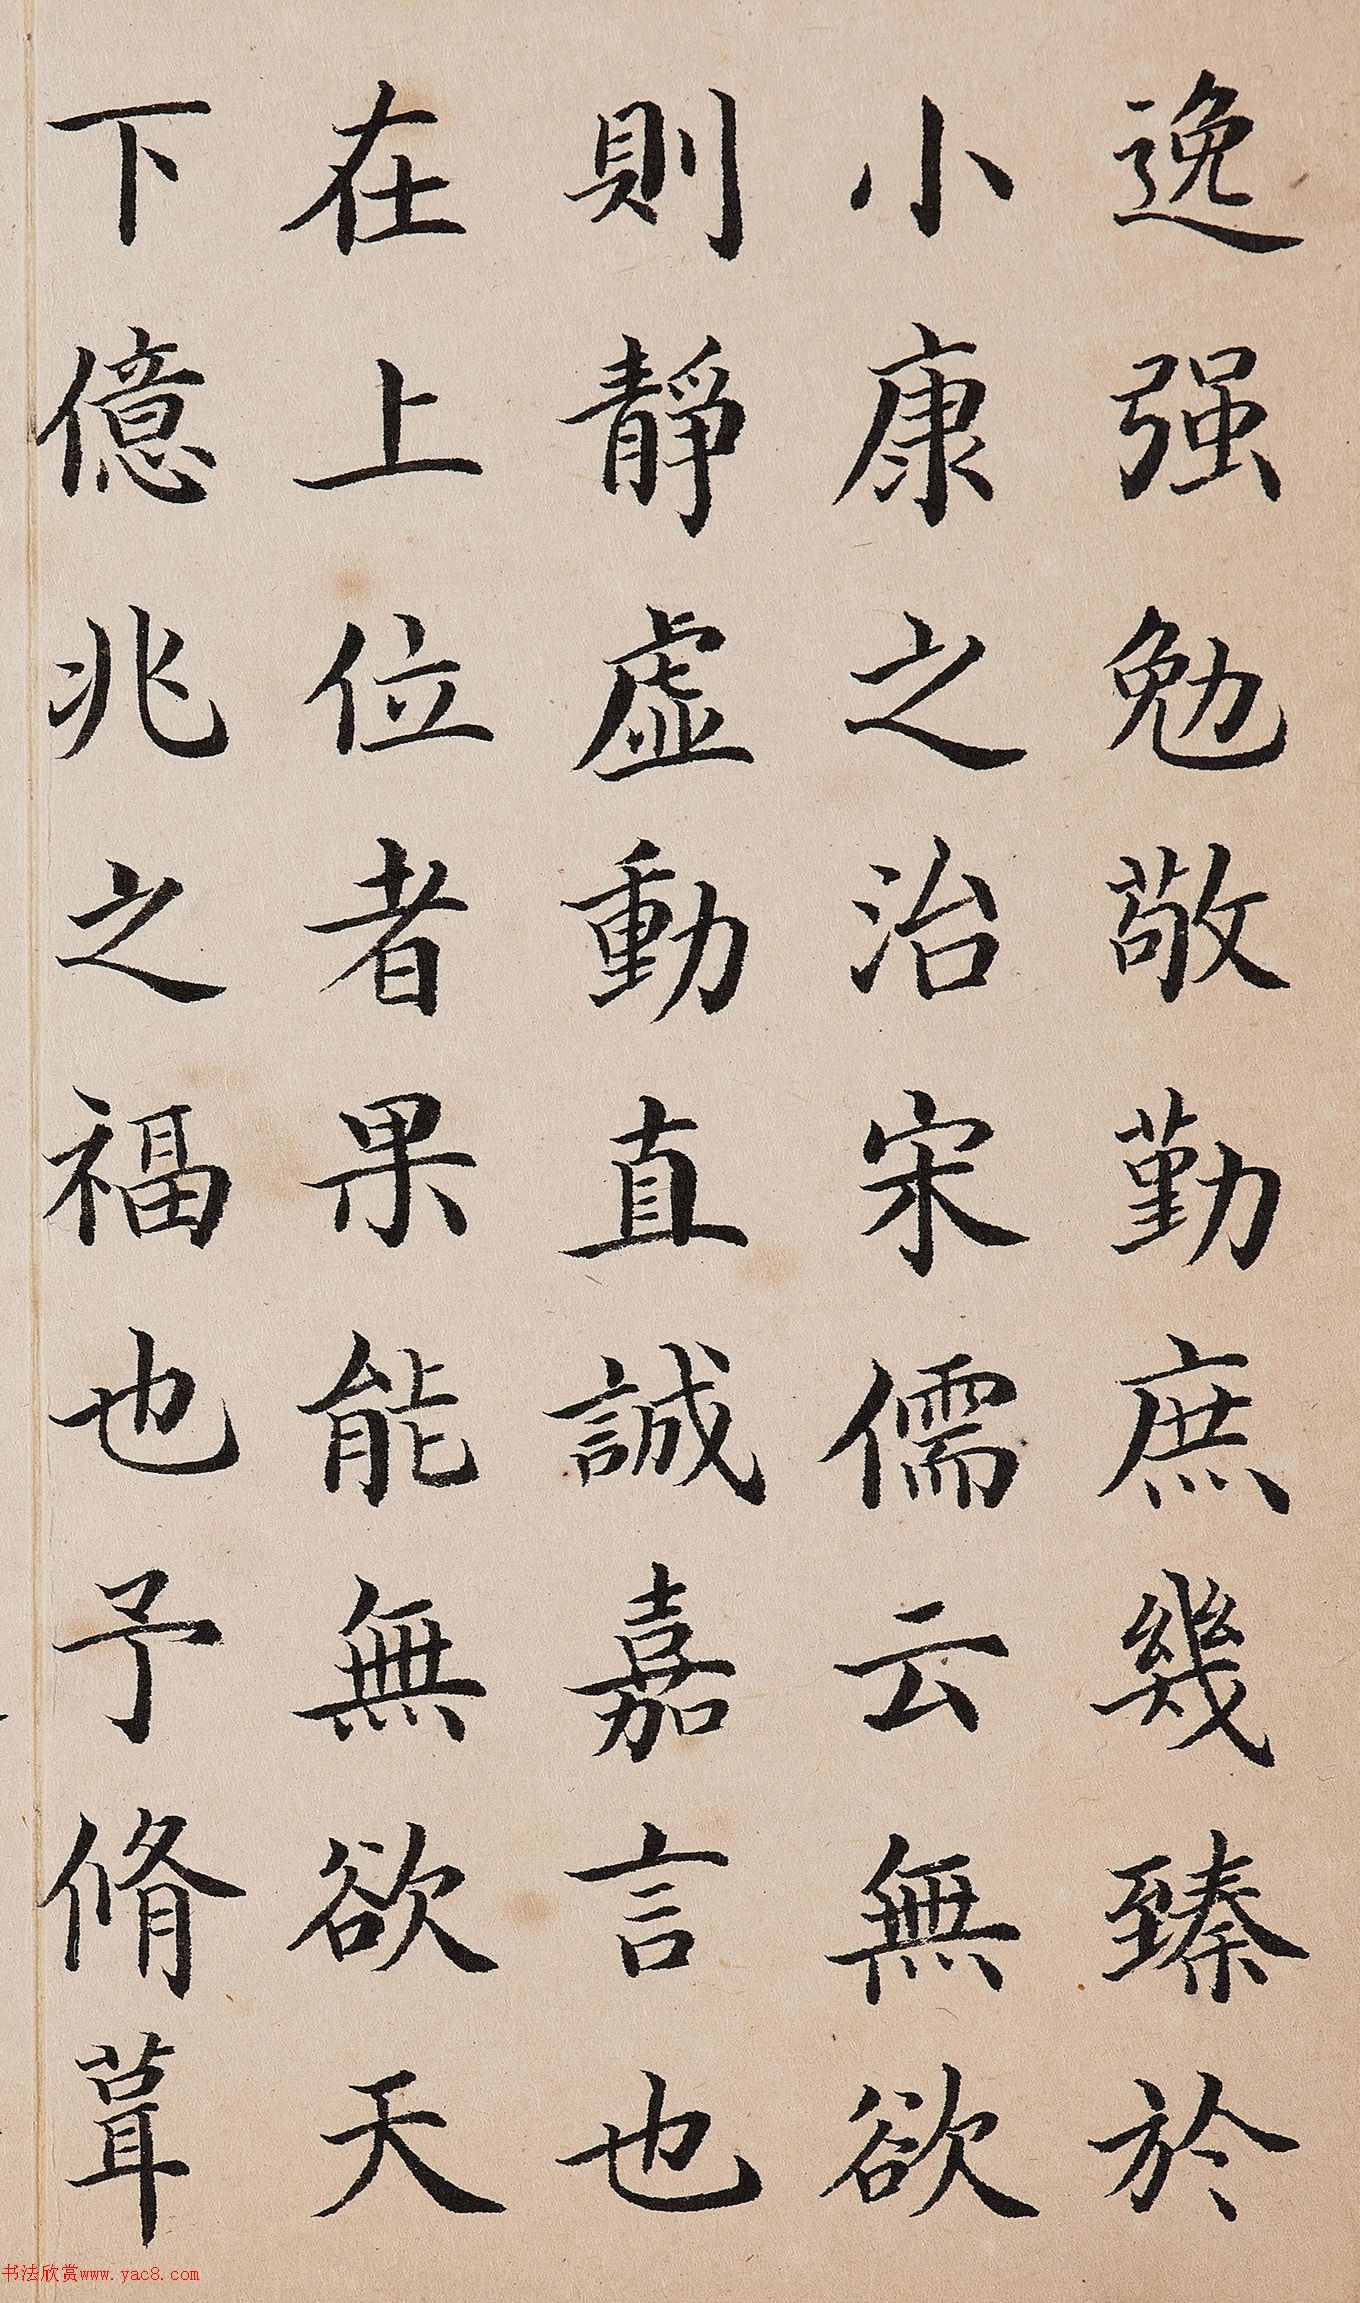 逸强勉敬勤庶幾臻於
小康之治宋儒云無欲
則靜虛動直誠嘉言也
在上位者果能無欲天
下億兆之福也予脩葺
书法欣赏www.yac8.com